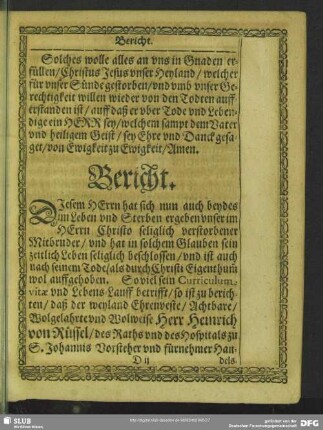 Bericht.
Solches wolle alles an vns in Gnaden er-
füllen/Christus Jesus vnser Heyland/ welcher
für vnser Sünde gestorben/vnd vmb vnser Ge-
rechtigkeit willen wieder von den Todten auff-
erstanden ist/ auff daß er vber Tode vnd Leben-
dige ein HERR sey/ welchem sampt dem Vater
vnd heiligem Geist/ sey Ehre vnd Danck gesa-
get/von Ewigkeit zu Ewigkeit/Amen.
Bericht.
DIesem HErrn hat sich nun auch beydes
im Leben vnd Sterben ergeben vnser im
HErrn Christo seliglich verstorbener
Mitbruder/ vnd hat in solchem Glauben sein
zeitlich Leben seliglich beschlossen/vnd ist auch
nach seinem Tode/als durch Christi Eigenthum
wol auffgehoben. So viel sein Curriculum
vitæ vnd Lebens-Lauff betrifft/so ist zu berich-
ten/ daß der weyland Ehrenveste/ Achtbare/
Wolgelahrte vnd Wolweise Herr Heinrich
von Rüssel/des Raths vnd des Hospitals zu
S. Johannis Vorsteher vnd fürnehmer Han-
D ij
dels-
SLUB
Wir führen Wissen.
gefördert von der
Deutschen Forschungsgemeinschaft
DFG